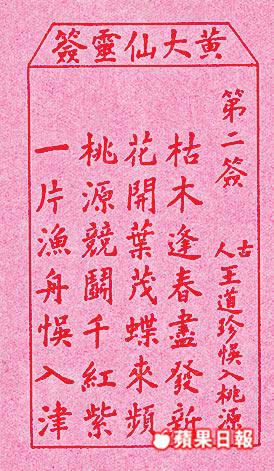 黃大仙靈簽
第二簽
古人 王道珍悞入桃源
枯木逢春盡發新
花開葉茂蝶來頻
桃源競鬭千紅紫
一片漁舟悞入津
蘋果日報